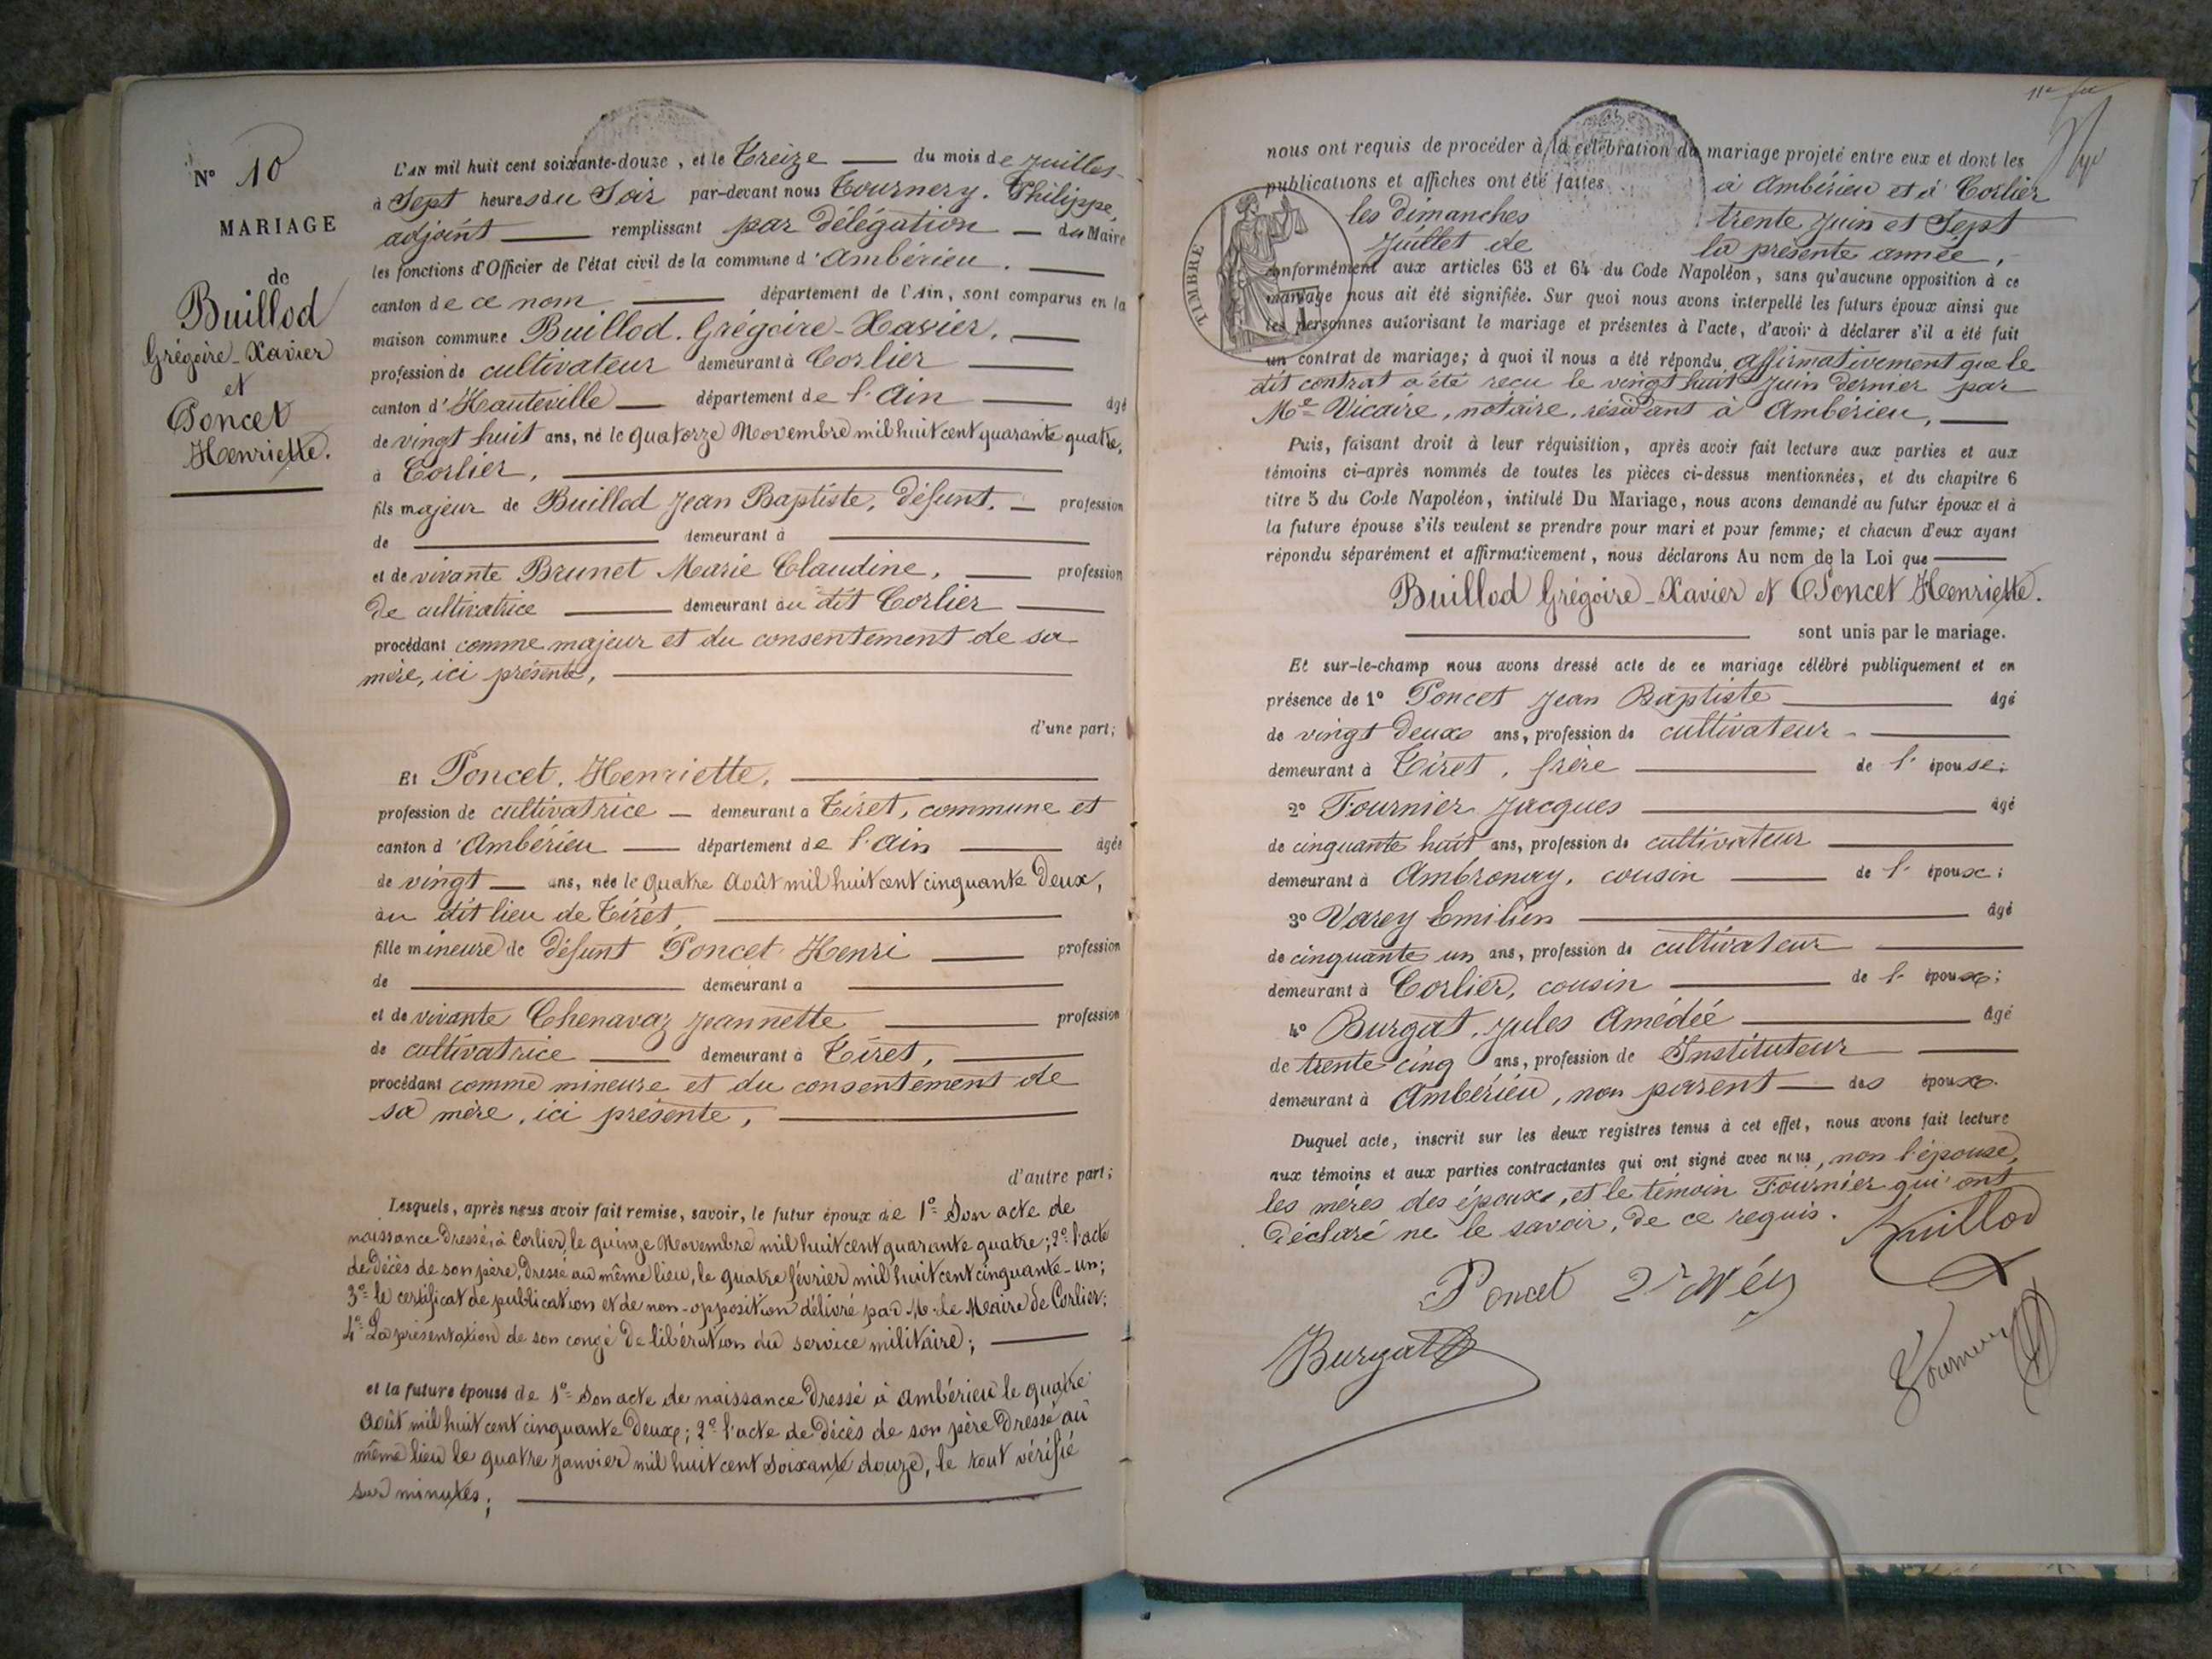 N° 10
MARIAGE
de
Buillod
Grégoire-Xavier
et
Poncet
Henriette.
L'AN mil huit cent soixante-douze, et le Treize du mois de Juillet
à Sept heures du Soir par-devant nous Tournery. Philippe,
adjoint remplissant par délégation du Maire
les fonctions d'Officier de l'état civil de la commune d'Ambérieu.
canton de ce nom département de l'Ain, sont comparus en la
maison commune Buillod. Grégoire-Xavier.
profession de cultivateur demeurant à Corlier
canton d'Hauteville département de l'Ain âgé
de vingt huit ans, né le quatorze Novembre mil huit cent quarante quatre,
à Corlier,
fils majeur de Buillod Jean Baptiste, défunt. profession
de demeurant à
et de vivante Brunet Marie Claudine, profession
de cultivatrice demeurant au dit Corlier
procédant comme majeur et du consentement de sa
mère, ici présente,
d'une part;
Et Poncet. Henriette,
profession de cultivatrice demeurant à Tiret, commune et
canton d'Ambérieu département de l'Ain âgée
de vingt ans, née le quatre Août mil huit cent cinquante deux,
au dit lieu de Tiret,
fille mineure de défunt Poncet Henri profession
de demeurant à
et de vivante Chenavaz Jeannette profession
de cultivatrice demeurant à Tiret,
procédant comme mineure et du consentement de
sa mère, ici présente,
d'autre part;
Lesquels, après nous avoir fait remise, savoir, le futur époux de 1° Son acte de
naissance dressé, à Corlier, le quinze Novembre mil huit cent quarante quatre; 2° l'acte
de décès de son père, dressé au même lieu, le quatre février mil huit cent cinquante-un;
3° le certificat de publication et de non-opposition délivré par M. le Maire de Corlier;
4° La présentation de son congé de libération du service militaire;
et la future épouse de 1° Son acte de naissance dressé à Ambérieu le quatre
Août mil huit cent cinquante deux; 2° l'acte de décès de son père dressé au
même lieu le quatre Janvier mil huit cent soixante douze, le tout vérifié
sur minutes;
nous ont requis de procéder à la célébration du mariage projeté entre eux et dont les
publications et affiches ont été faites à Ambérieu et à Corlier
les dimanches trente Juin et Sept
Juillet de la présente année,
TIMBRE
conformément aux articles 63 et 64 du Code Napoléon, sans qu'aucune opposition à ce
mariage nous ait été signifiée. Sur quoi nous avons interpellé les futurs époux ainsi que
les personnes autorisant le mariage et présentes à l'acte, d'avoir à déclarer s'il a été fait
un contrat de mariage; à quoi il nous a été répondu affirmativement que le
dit contrat a été reçu le vingt huit Juin dernier par
Me Vicaire, notaire, résidant à Ambérieu,
Puis, faisant droit à leur réquisition, après avoir fait lecture aux parties et aux
témoins ci-après nommés de toutes les pièces ci-dessus mentionnées, et du chapitre 6
titre 5 du Code Napoléon, intitulé Du Mariage, nous avons demandé au futur époux et à
la future épouse s'ils veulent se prendre pour mari et pour femme; et chacun d'eux ayant
répondu séparément et affirmativement, nous déclarons Au nom de la Loi que
Buillod Grégoire-Xavier et Poncet Henriette.
sont unis par le mariage.
Et sur-le-champ nous avons dressé acte de ce mariage célébré publiquement et en
présence de 1° Poncet Jean Baptiste âgé
de vingt deux ans, profession de cultivateur
demeurant à Tiret, frère de l'épouse;
2° Fournier Jacques âgé
de cinquante huit ans, profession de cultivateur
demeurant à Ambronay, cousin de l'époux;
3° Varey Emilien âgé
de cinquante un ans, profession de cultivateur
demeurant à Corlier, cousin de l'époux;
4° Burgat. Jules Amédée âgé
de trente cinq ans, profession de Instituteur
demeurant à Ambérieu, non parent des époux.
Duquel acte, inscrit sur les deux registres tenus à cet effet, nous avons fait lecture
aux témoins et aux parties contractantes qui ont signé avec nous, non l'épouse,
les mères des époux, et le témoin Fournier qui ont
déclaré ne le savoir, de ce requis.
Buillod
Poncet
Burgat
Tournery